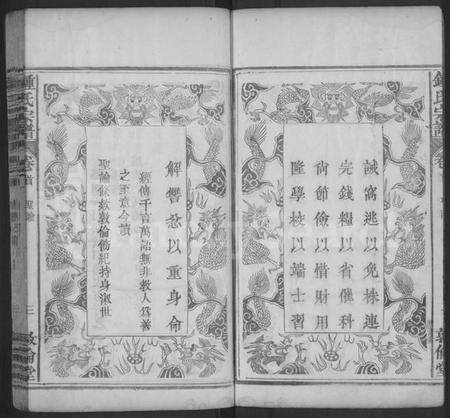 鍾氏宗譜
卷首
敦倫堂
誡窩逃以免株連
完錢糧以省催科
尚節儉以惜財用
隆學校以端士習
解讐忿以重身命
經傳千言萬語無非教人爲善
之至意今讀
聖諭條款敦倫飭紀持身淑世
鍾氏宗譜
卷首
聖諭
三
敦倫堂